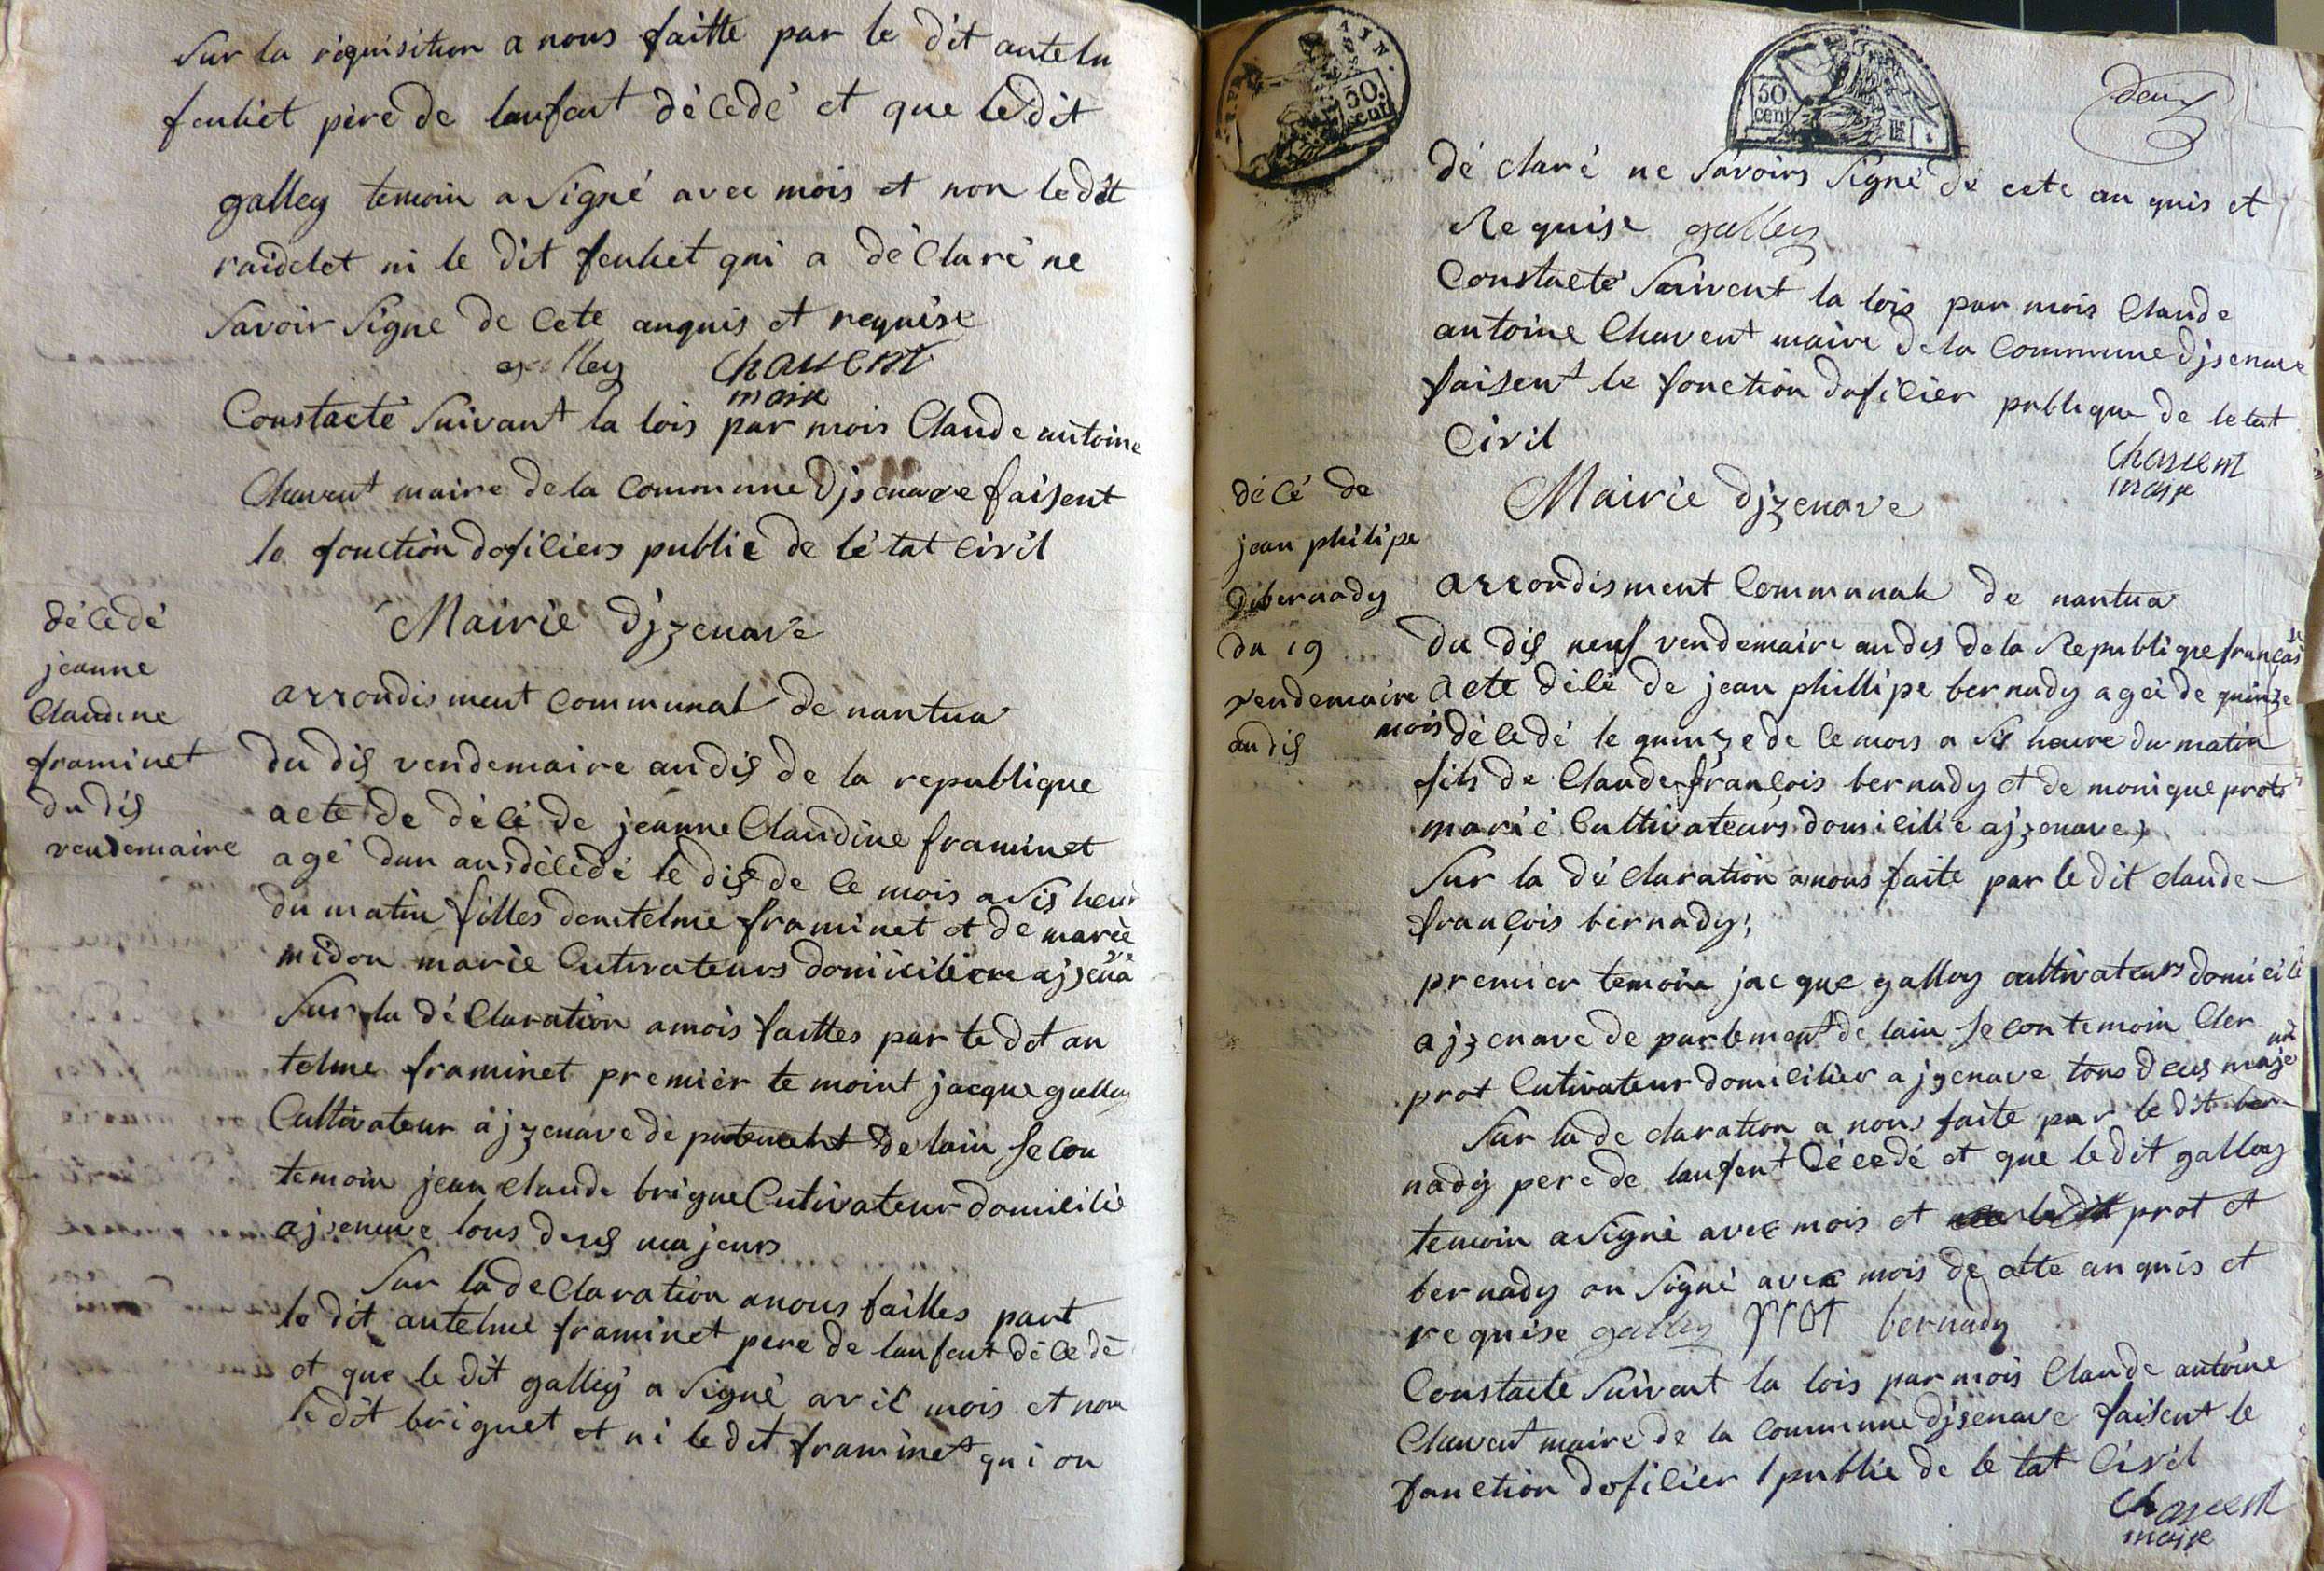 Sur la requisition a nous faitte par le dit antelm
feuliet père de lenfent dècedé et que le dit
galley temoin a signé avec mois et non le dit
raidelet ni le dit feuliet qui a dèclarè ne
savoir signe de cete anquis et requise
galley chavent
maire
Constacté suivant la lois par mois Claude antoine
Chavent maire de la commune djsenave faisent
le fonction dofiliers public de lètat civil
dècedè
jeanne
Claudine
framinet
du dis
vendemaire
Mairie djzenave
arrondisment communal de nantua
du dis vendemaire an dis de la republique
acte de dècé de jeanne Claudine framinet
agé dun ans dècèdé le dis de ce mois a sis heur
du matin filles dentelme framinet et de marie
midon marie Cutivateurs domiciliere ajzena
ve
Sur la dèclaration a mois faittes par le dit an
telme framinet premièr te moint jacque galley
Cultivateur à jzenave de partement de lain se con
temoin jean claude brigue Cutivateur domicilié
ajsenave tous deus majeurs
Sur la declaration a nous failles part
le dit antelme framinet pere de lenfent dècedè
et que le dit galley a signé avec mois et non
le dit briguet et ni le dit framinet qui on
AIN.
50.
cent
50.
cent
deux
dé claré ne savoirs signé de cete an quis et
Requise galley
Constacté suivent la lois par mois Claude
antoine Chavent maire de la Commune djsenave
faisent le fonction dofilier publique de letat
Civil
chavent
maire
Mairie djzenave
dècé de
jean philipe
bernady
du 19
vendemaire
an dis
arrondisment Communale de nantua
du dis neuf vendemaire an dis de la Republique françai
se
acte dècé de jean phillipe bernady ageé de quinze
mois dècedé le quinze de ce mois a sis heure du matin
fils de Claude françois bernady et de monique prots
marié Cultivateurs domicilie ajzenave
Sur la dé claration a nous faite par le dit claude
françois bernady
premier temoin jacque galley cultivateurs domicilé
ajzenave de partement de lain se con temoin Cler
prot Cutivateur domicilier ajzenave tous deus maje
urs
Sur la de claration a nous faite par le dit ber
nady pere de lenfent dècedé et que le dit galley
temoin a signé avec mois et prot et
bernady on signé avec mois de cette an quis et
requise galley prot bernady
Constacte suivent la lois par mois Claude antoine
Chavent maire de la commune djsenave faisent le
fonction dofilier publie de le tat Civil
chavent
maire